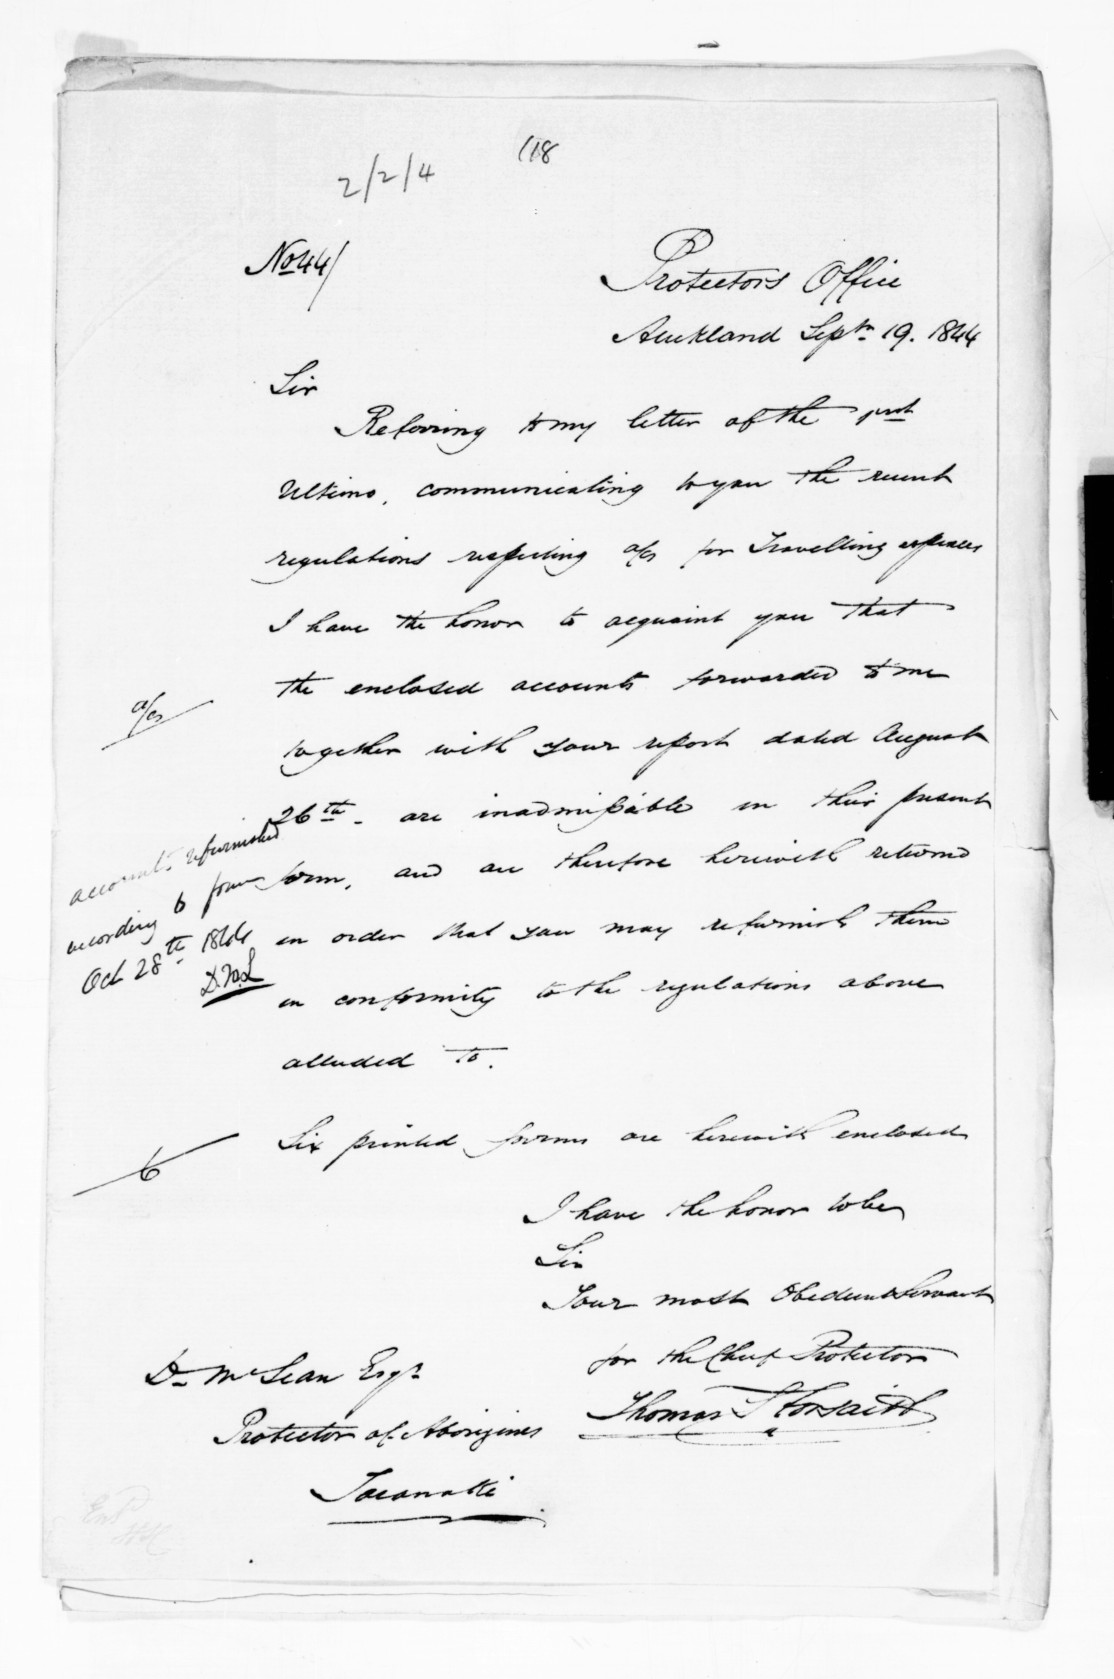 118
2/2/4
No 44/
Protector's Office
Auckland Septr 19. 1844
Sir
Referring to my letter of the
Ultimo, communicating to you the recent
regulations respecting a/cs for Travelling expenses
I have the honor to acquaint you that
the enclosed accounts forwarded to me
a/cs
together with your report dated August
26th. are inadmissable in their present
form, and are therefore herewith returned
in order that you may refurnish them
in conformity to the regulations above
alluded to.
accounts refurnished
according to form
Oct 28th 1844
D. McL
Six printed forms are herewith enclosed
6
I have the honor to be
Sir
Your most Obedient Servant
for the Chief Protector
Thomas S Forsaith
D McLean Esqr
Protector of Aborigines
Taranaki